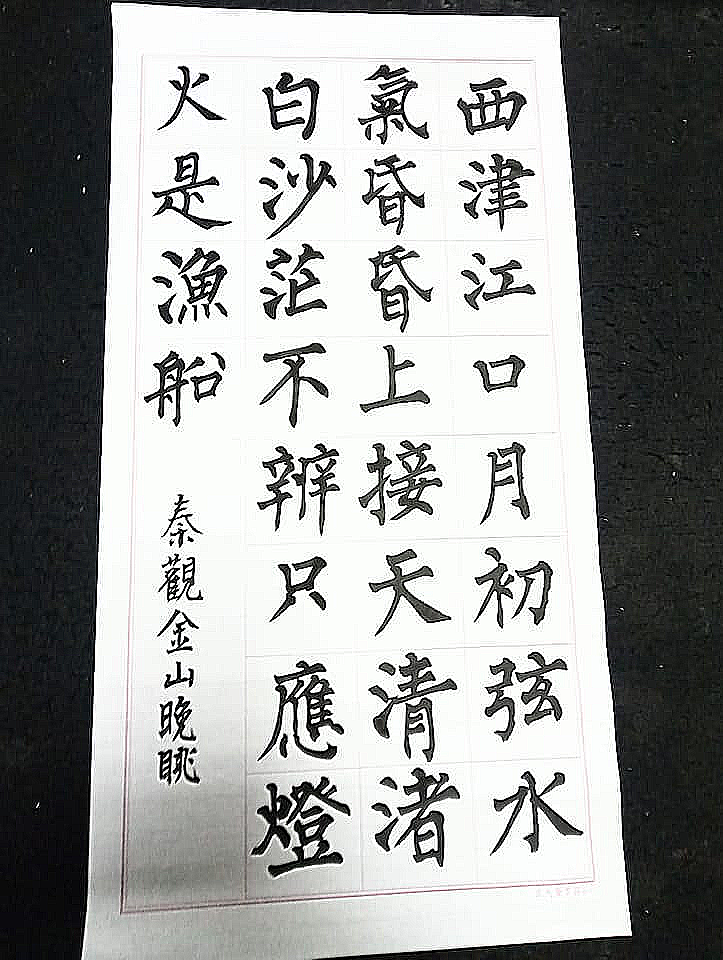 西津江口月初弦水
氣昏昏上接天清渚
白沙茫不辨只應燈
火是漁船
秦觀金山晚眺